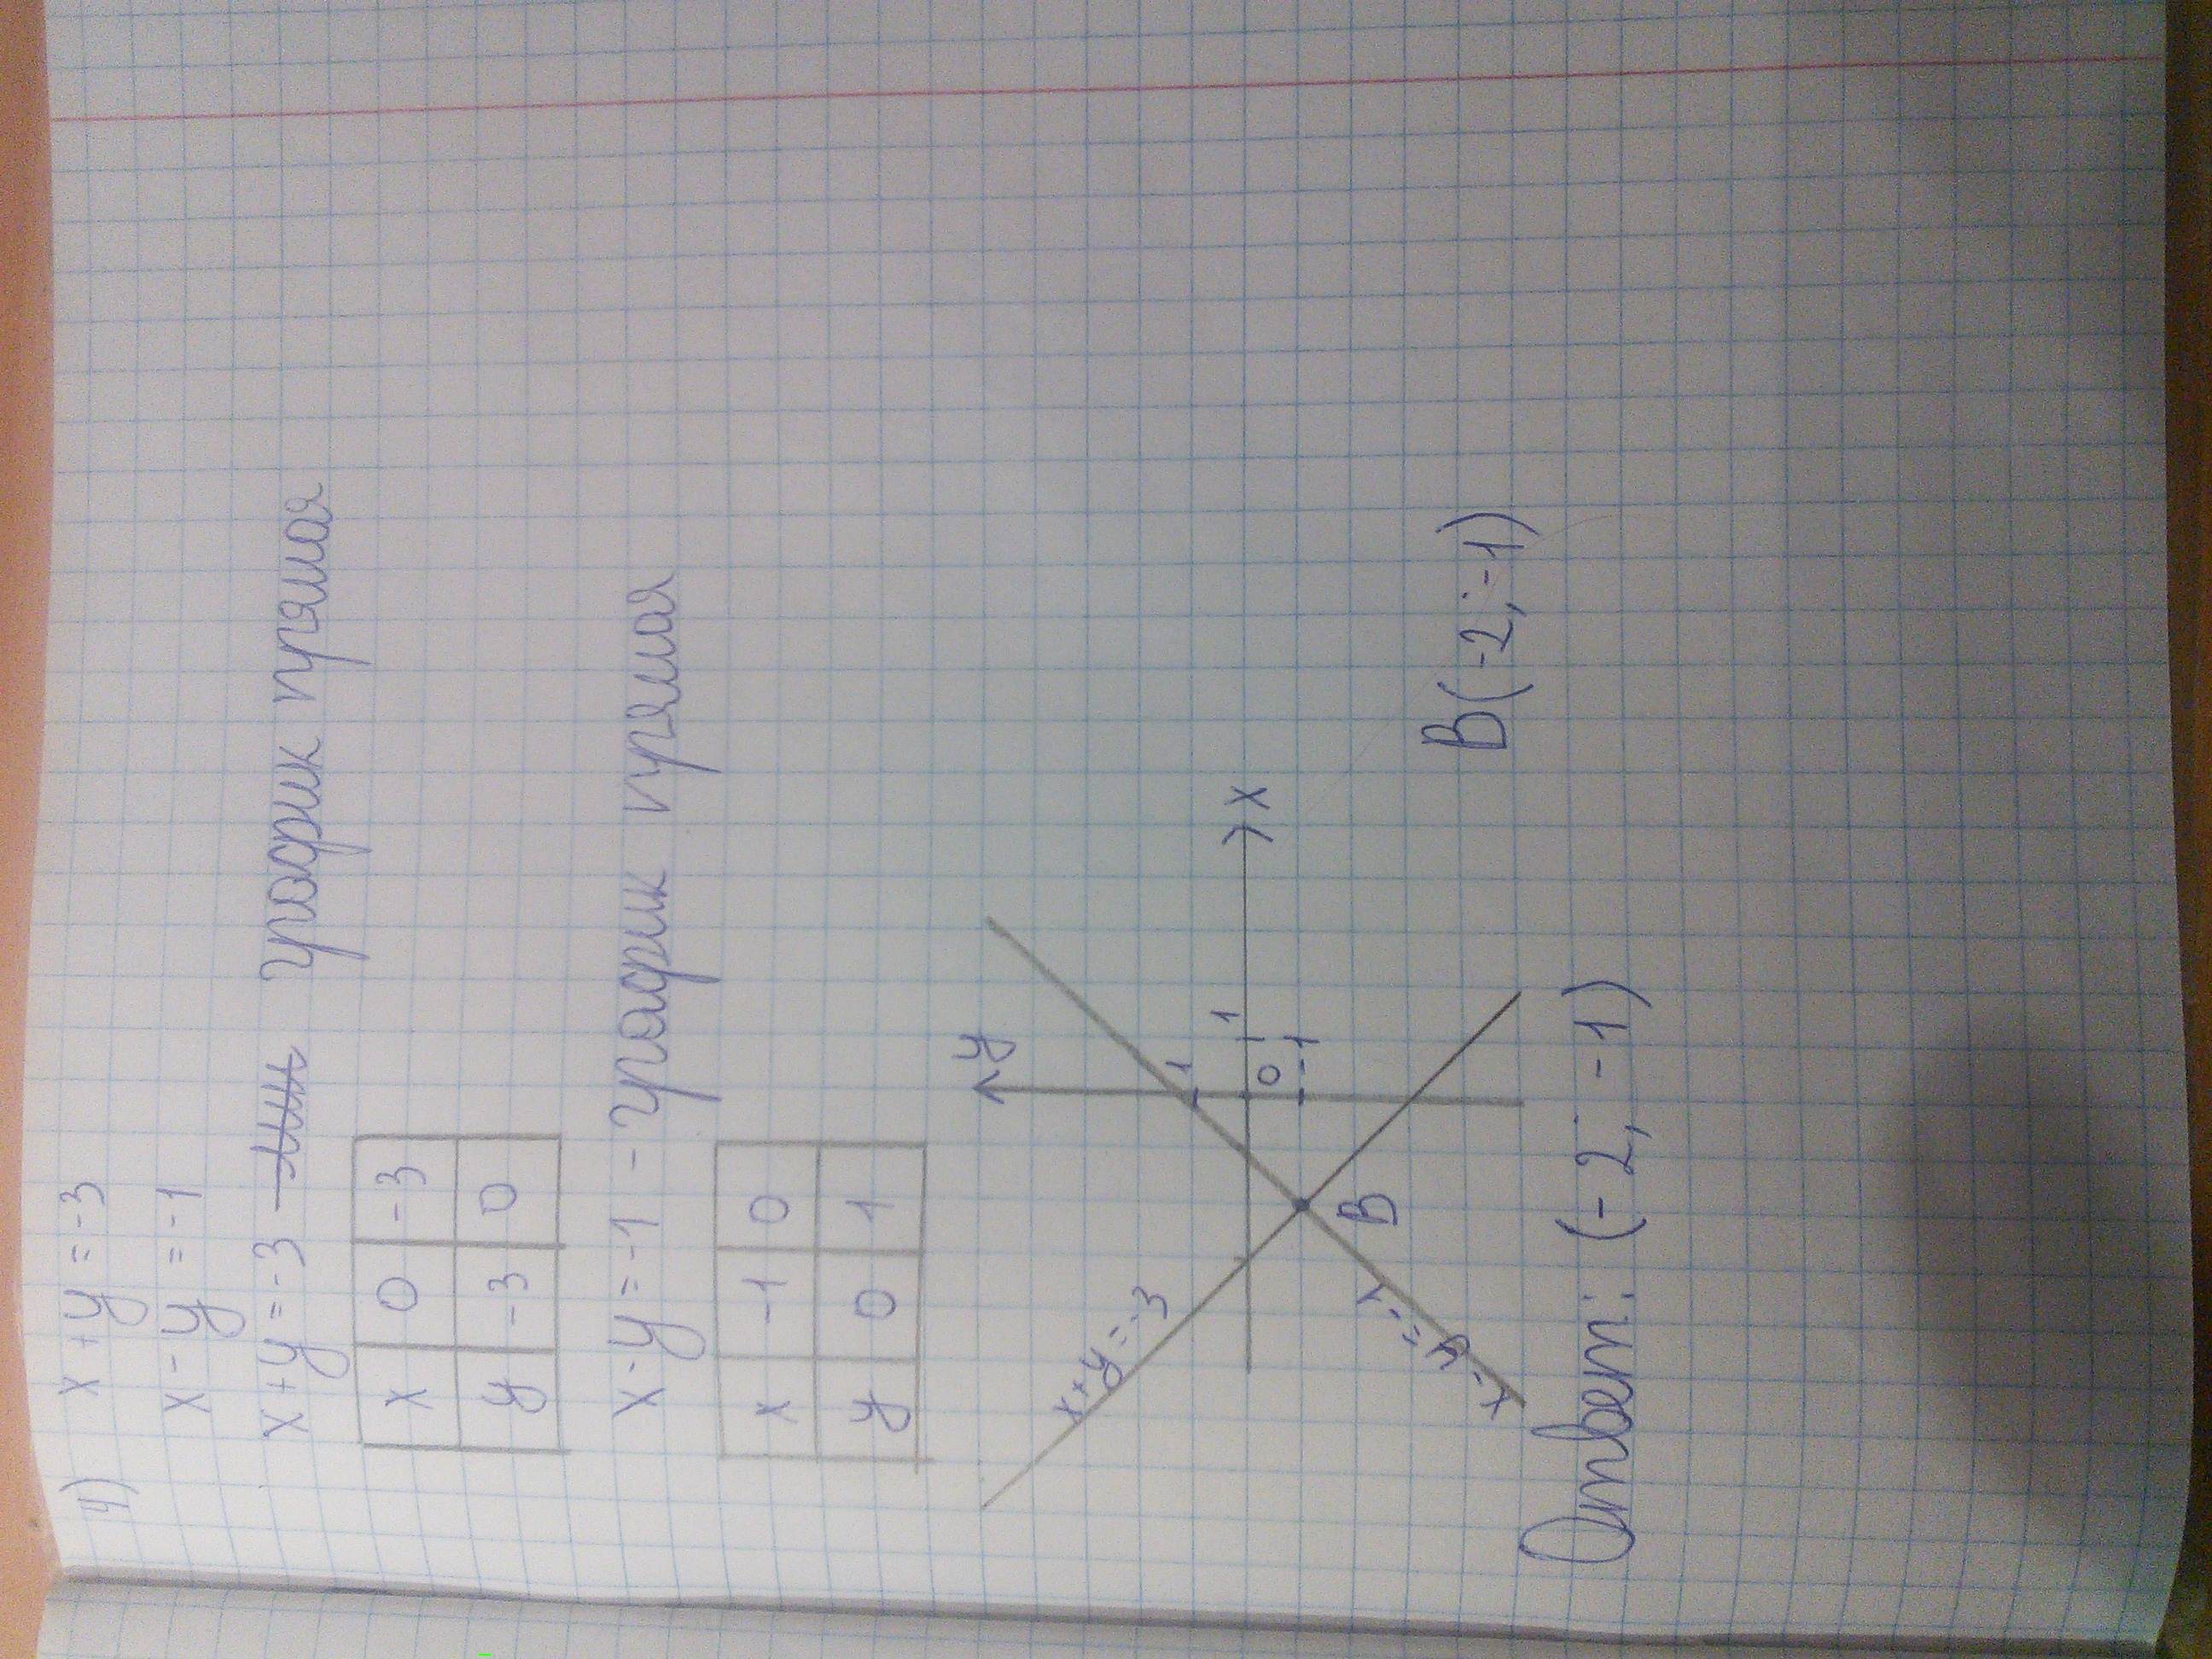 4) x+y=-3
x-y=-1
x+y=-3 график прямая
x 0 -3
y -3 0
x-y=-1 - график прямая
x -1 0
y 0 1
y
x+y=-3
1
1
x
0
-1
B
x-y=-1
B(-2;-1)
Ответ: (-2; -1)